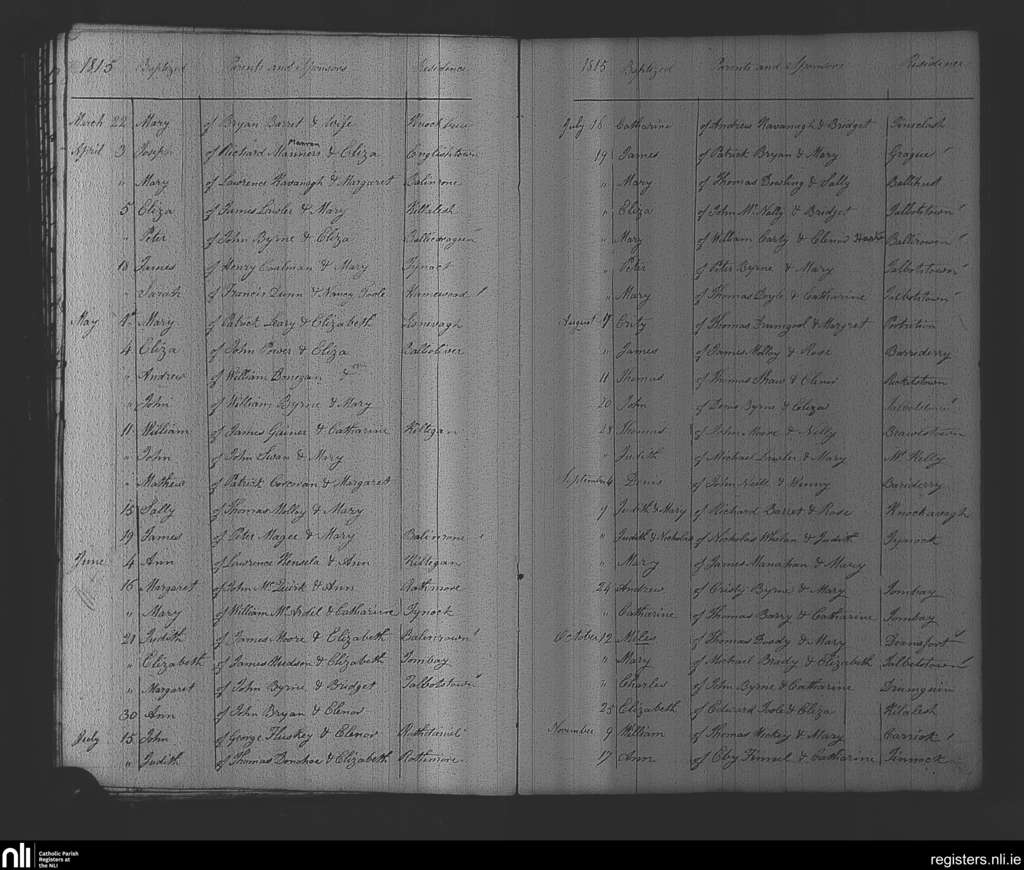 1815 Baptized Parents and Sponsors Residence
March 22 Mary of Bryan Barret & Wife Knocktrue
Manran
April 3 Joseph of Richard Manners & Eliza Englishtown
" Mary of Lawrence Kavanagh & Margaret Balinrone
5 Eliza of James Lawler & Mary Killalesh
" Peter of John Byrne & Eliza
18 James of Henry Coalman & Mary Tynock
" Sarah of Francis Dunn & Nancy Toole Humewood
May Mary of Patrick Leary & Elizabeth
4 Eliza of John Power & Eliza
" Andrew of William Donegan &
" John of William Byrne & Mary
11 William of James Gainer & Catharine Killegan
" John of John Swan & Mary
" Mathew of Patrick Corcoran & Margaret
15 Sally of Thomas Molloy & Mary
19 James of Peter Magee & Mary Balinrone
June 4 Ann of Lawrence Kensela & Ann Killegan
16 Margaret of John Mc Quirk & Ann Rathmore
" Mary of William Mc Ardel & Catharine Tynock
21 Judith of James Moore & Elizabeth
" Elizabeth of James Hudson & Elizabeth Tombay
" Margaret of John Byrne & Bridget Talbotstown
30 Ann of John Bryan & Elenor
July 15 John of George Fluskey & Elenor
" Judith of Thomas Donohoe & Elizabeth Rathmore
1815 Baptized Parents and Sponsors Residence
July 16 Catharine of Andrew Kavanagh & Bridget
19 James of Patrick Bryan & Mary Grague
" Mary of Thomas Dowling & Sally
" Eliza of John Mc Nally & Bridget Talbotstown
" Mary of William Carty & Elenor
" Peter of Peter Byrne & Mary Talbotstown
" Mary of Thomas Doyle & Catharine Talbotstown
August of Thomas Drumgool & Margret
" James of James Molloy & Rose Barraderry
11 Thomas of Thomas Shaw & Elenor
20 John of Denis Byrne & Eliza
28 Thomas of John Moore & Nelly
" Judith of Michael Lawler & Mary Mt Kelly
September 4 Denis of John Neill & Winny
9 Judith & Mary of Richard Barret & Rose Knockavagh
" Judith & Nicholas of Nicholas Whelan & Judith Tynock
" Mary of James Manahan & Mary
24 Andrew of Cristy Byrne & Mary Tombay
" Catharine of Thomas Barry & Catharine Tombay
October 12 Miles of Thomas Doody & Mary
" Mary of Michael Brady & Elizabeth Talbotstown
" Charles of John Byrne & Catharine Drumguin
25 Elizabeth of Edward Toole & Eliza Kilalesh
November 9 William of Thomas Hickey & Mary Carrick
17 Ann of Eby Finnel & Catharine Tinnock
nli Catholic Parish
Registers at
the NLI
registers.nli.ie